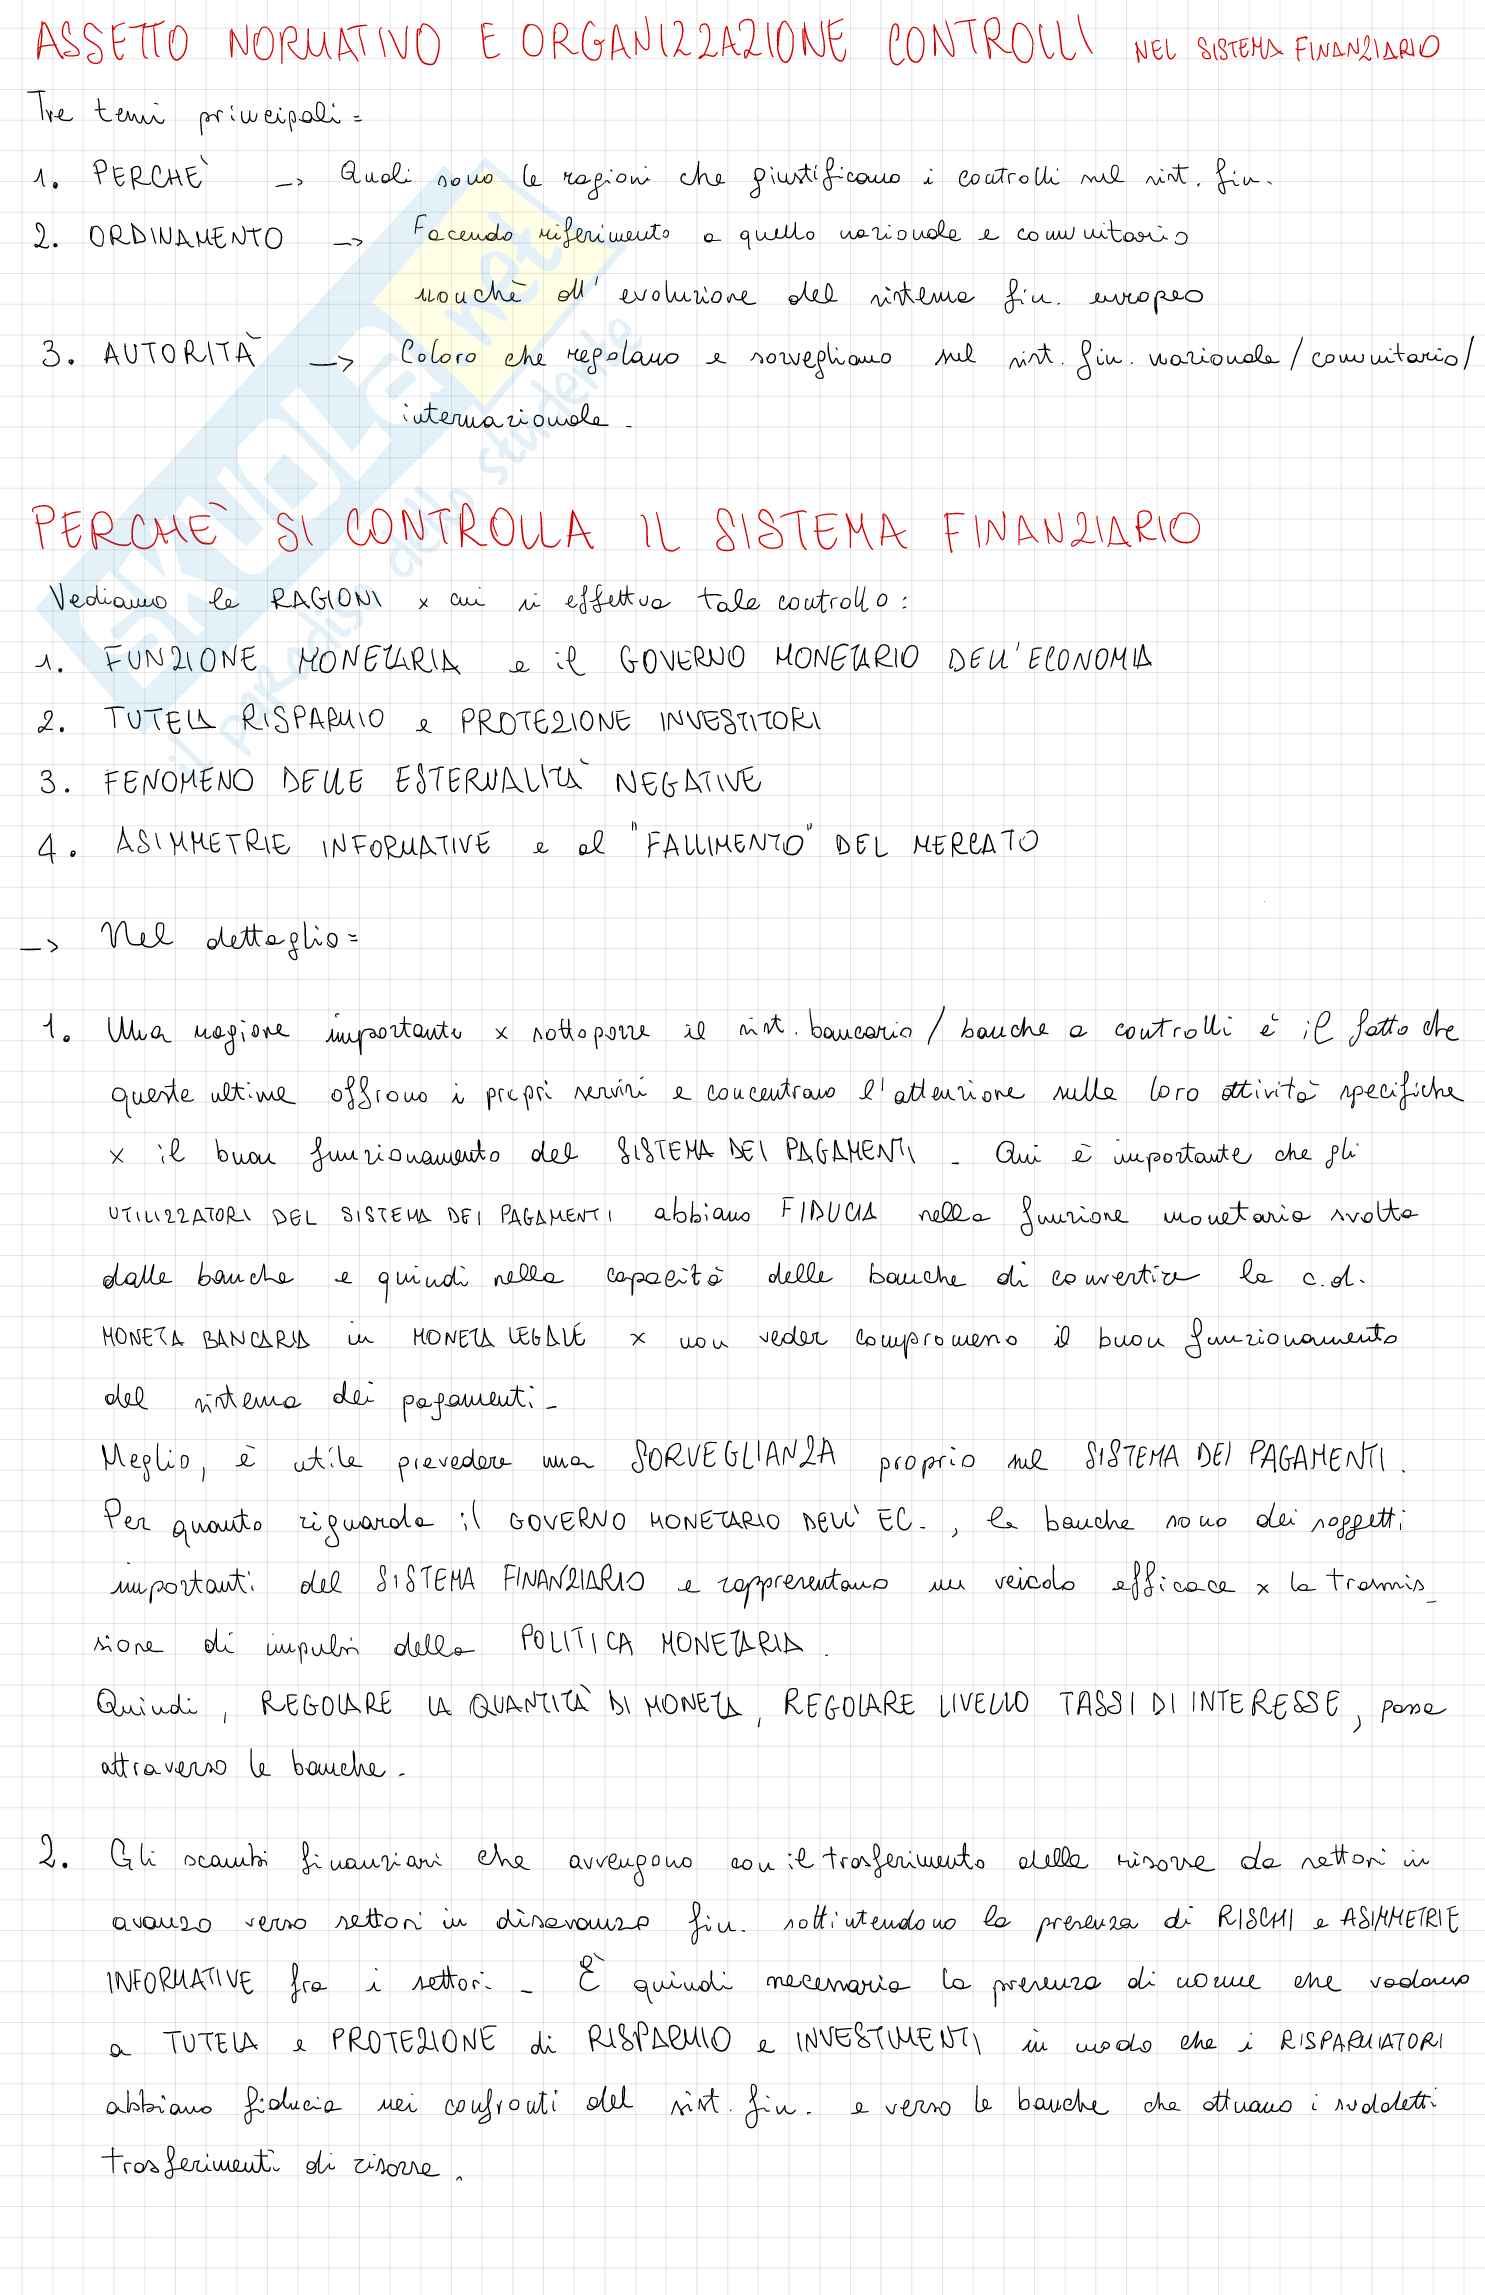 ASSETTO NORMATIVO E ORGANIZZAZIONE CONTROLLI NEL SISTEMA FINANZIARIO
Tre temi principali =
1. PERCHÈ → Quali sono le ragioni che giustificano i controlli nel sist. fin.
2. ORDINAMENTO → Facendo riferimento a quello nazionale e comunitario
nonchè all' evoluzione del sistema fin. europeo
3. AUTORITÀ → Coloro che regolano e sorvegliano nel sist. fin. nazionale/comunitario/
internazionale.
PERCHÈ SI CONTROLLA IL SISTEMA FINANZIARIO
Vediamo le RAGIONI x cui si effettua tale controllo:
1. FUNZIONE MONETARIA e il GOVERNO MONETARIO DELL'ECONOMIA
2. TUTELA RISPARMIO e PROTEZIONE INVESTITORI
3. FENOMENO DELLE ESTERNALITÀ NEGATIVE
4. ASIMMETRIE INFORMATIVE e al "FALLIMENTO" DEL MERCATO
→ Nel dettaglio=
1. Una ragione importante x sottoporre il sist. bancario / banche a controlli è il fatto che
queste ultime offrono i propri servizi e concentrano l'attenzione sulle loro attività specifiche
x il buon funzionamento del SISTEMA DEI PAGAMENTI. Qui è importante che gli
UTILIZZATORI DEL SISTEMA DEI PAGAMENTI abbiano FIDUCIA nella funzione monetaria svolta
dalle banche e quindi nella capacità delle banche di convertire la c.d.
MONETA BANCARIA in MONETA LEGALE x non veder compromesso il buon funzionamento
del sistema dei pagamenti.
Meglio, è utile prevedere una SORVEGLIANZA proprio sul SISTEMA DEI PAGAMENTI.
Per quanto riguarda il GOVERNO MONETARIO DELL' EC., le banche sono dei soggetti
importanti del SISTEMA FINANZIARIO e rappresentano un veicolo efficace x la trasmis_
sione di impulsi della POLITICA MONETARIA.
Quindi, REGOLARE LA QUANTITÀ DI MONETA, REGOLARE LIVELLO TASSI DI INTERESSE, passa
attraverso le banche.
2. Gli scambi finanziari che avvengono con il trasferimento delle risorse da settori in
avanzo verso settori in disavanzo fin. sottintendono la presenza di RISCHI e ASIMMETRIE
INFORMATIVE fra i settori. È quindi necessaria la presenza di norme che vadano
a TUTELA e PROTEZIONE di RISPARMIO e INVESTIMENTI in modo che i RISPARMIATORI
abbiano fiducia nei confronti del sist. fin. e verso le banche che attuano i suddetti
trasferimenti di risorse.
SKUOLA.net
il paradiso dello studente